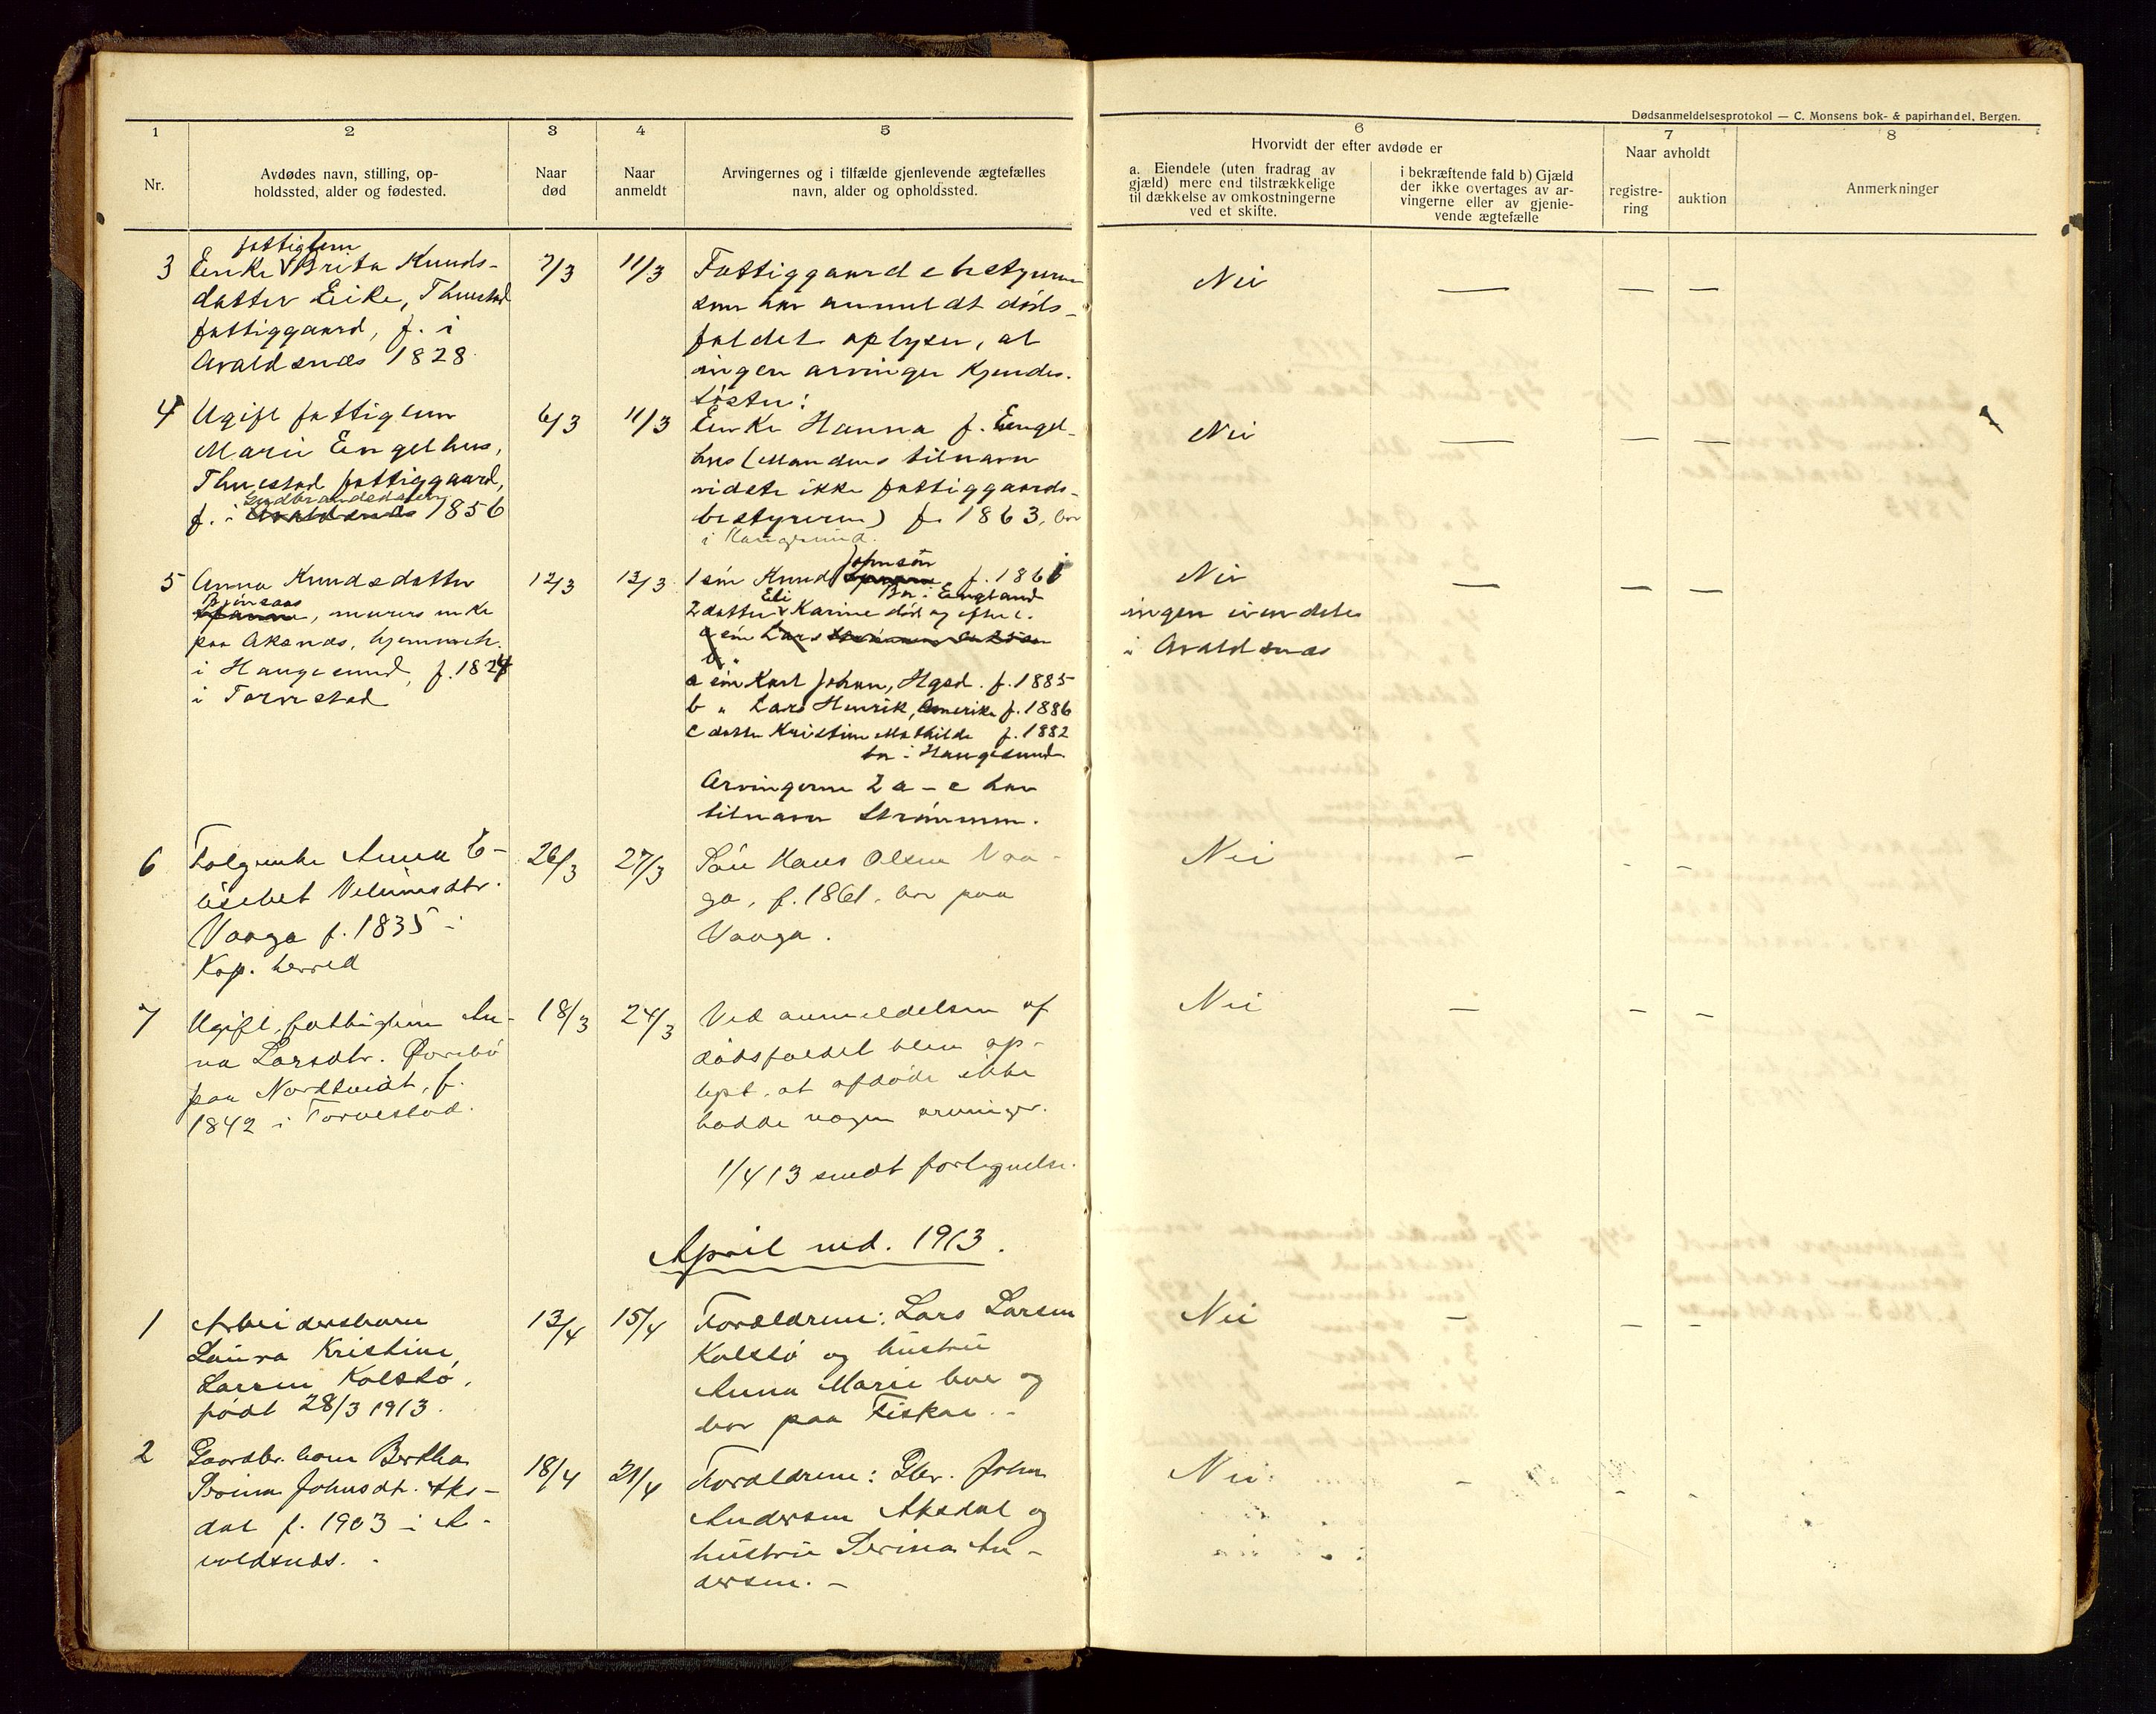 Dødsanmeldelsesprotokol — C. Monsens bok- & papirhandel, Bergen.
1 2 3 4 5 6 7 8
Nr.
Avdødes navn, stilling, op-
holdssted, alder og fødested.
Naar
død
Naar
anmeldt
Arvingernes og i tilfælde gjenlevende ægtefælles
navn, alder og opholdssted.
Hvorvidt der efter avdøde er
a. Eiendele (uten fradrag av
gjæld) mere end tilstrækkelige
til dækkelse av omkostningerne
ved et skifte.
i bekræftende fald b) Gjæld
der ikke overtages av ar-
vingerne eller av gjenle-
vende ægtefælle
Naar avholdt
registre-
ring
auktion
Anmerkninger
fattiglem
3 Enke Brita Knuds-
datter Eike, Thuestad
fattiggaard, f. i
Avaldsnæs 1828
7/3 11/3
Fattiggaardsbestyreren
som har anmeldt døds-
faldet oplyser, at
ingen arvinger kjendes.
Nei — — —
4 Ugift fattiglem
Marie Engelhus,
Thuestad fattiggaard,
Gudbrandsdalen
f. i Avaldsnæs 1856
6/3 11/3
Søster:
Enke Hanna f. Engel-
hus (Mandens tilnavn
vidste ikke fattiggaards-
bestyreren) f. 1863, bor
i Haugesund.
Nei — — —
5 Anna Knudsdatter
Bjønsaas
, murers enke
paa Aksnæs, hjemmeh.
i Haugesund, f. 1824
i Torvestad
12/3 13/3
Johnson
1 søn Knud f. 1861
Eli Bor i England
2 datter Karine død og efterl.
a søn Lars
b "
a søn Karl Johan, Hgsd. f. 1885
b " Lars Henrik, Amerika f. 1886
c datter Kristine Mathilde f. 1882
bor i Haugesund.
Arvingerne 2 a – c har
tilnavn Strømmen.
Nei — — —
ingen eiendele
i Avaldsnæs
6 Følgeenke Anna E-
lisebet Velumsdtr.
Vaaga f. 1835 i
Kop. herred
26/3 27/3
Søn Hans Olsen Vaa-
ga, f. 1861, bor paa
Vaaga.
Nei — — —
7 Ugift, fattiglem An-
na Larsdtr. Førebø
paa Nordtveit, f.
1842 i Torvestad.
18/3 24/3
Ved anmeldelsen af
dødsfaldet blev op-
lyst, at afdøde ikke
hadde nogen arvinger.
Nei — — —
1/4 13 sendt fortegnelse.
April md. 1913.
1 Arbeidersbarn
Laura Kristine
Larsen Kolstø,
født 28/3 1913.
13/4 15/4
Forældrene: Lars Larsen
Kolstø og hustru
Anna Marie bor og
bor paa Fiskaa. –
Nei — — —
2 Gaardbr. barn Bertha
Serina Johnsdt. Aks-
dal f. 1903 i A-
valdsnæs. -
18/4 21/4
Forældrene: Gbr. John
Andersen Aksdal og
hustru Serina An-
dersen. –
Nei — — —